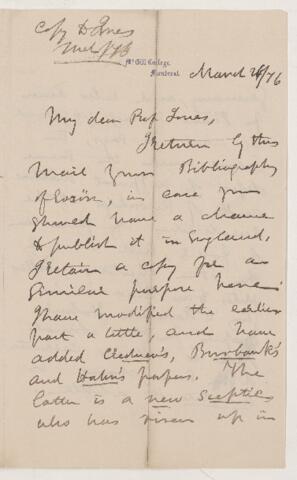 Copy to Jones
McGill College,
Montreal.
March 24/76
My dear Prof Jones,
I return by this
mail your Bibliography
of Eozöon, in case you
should have a chance
to publish it in England.
I retain a copy for a
similar purpose here.
I have modified the earlier
part a little, and have
added Credner's, Burbank's
and Hahn's papers. The
latter is a new sceptic
who has risen up in